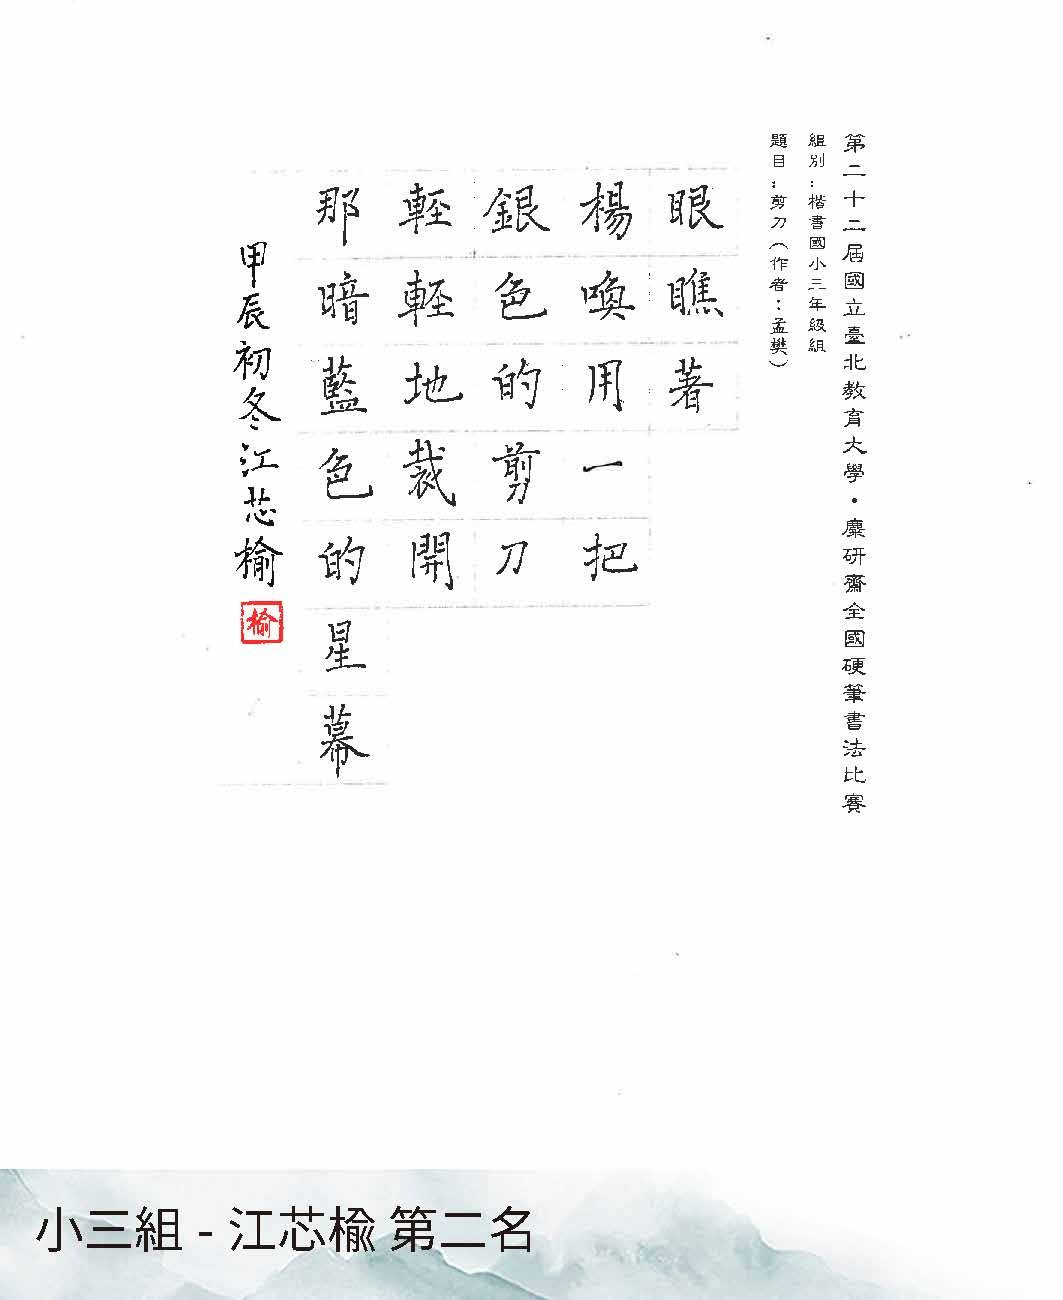 第二十二屆國立臺北教育大學・麋研齋全國硬筆書法比賽
組別：楷書國小三年級組
題目：剪刀（作者：孟樊）
眼瞧著
楊喚用一把
銀色的剪刀
輕輕地裁開
那暗藍色的星幕
甲辰初冬江芯榆
榆
小三組 - 江芯榆 第二名